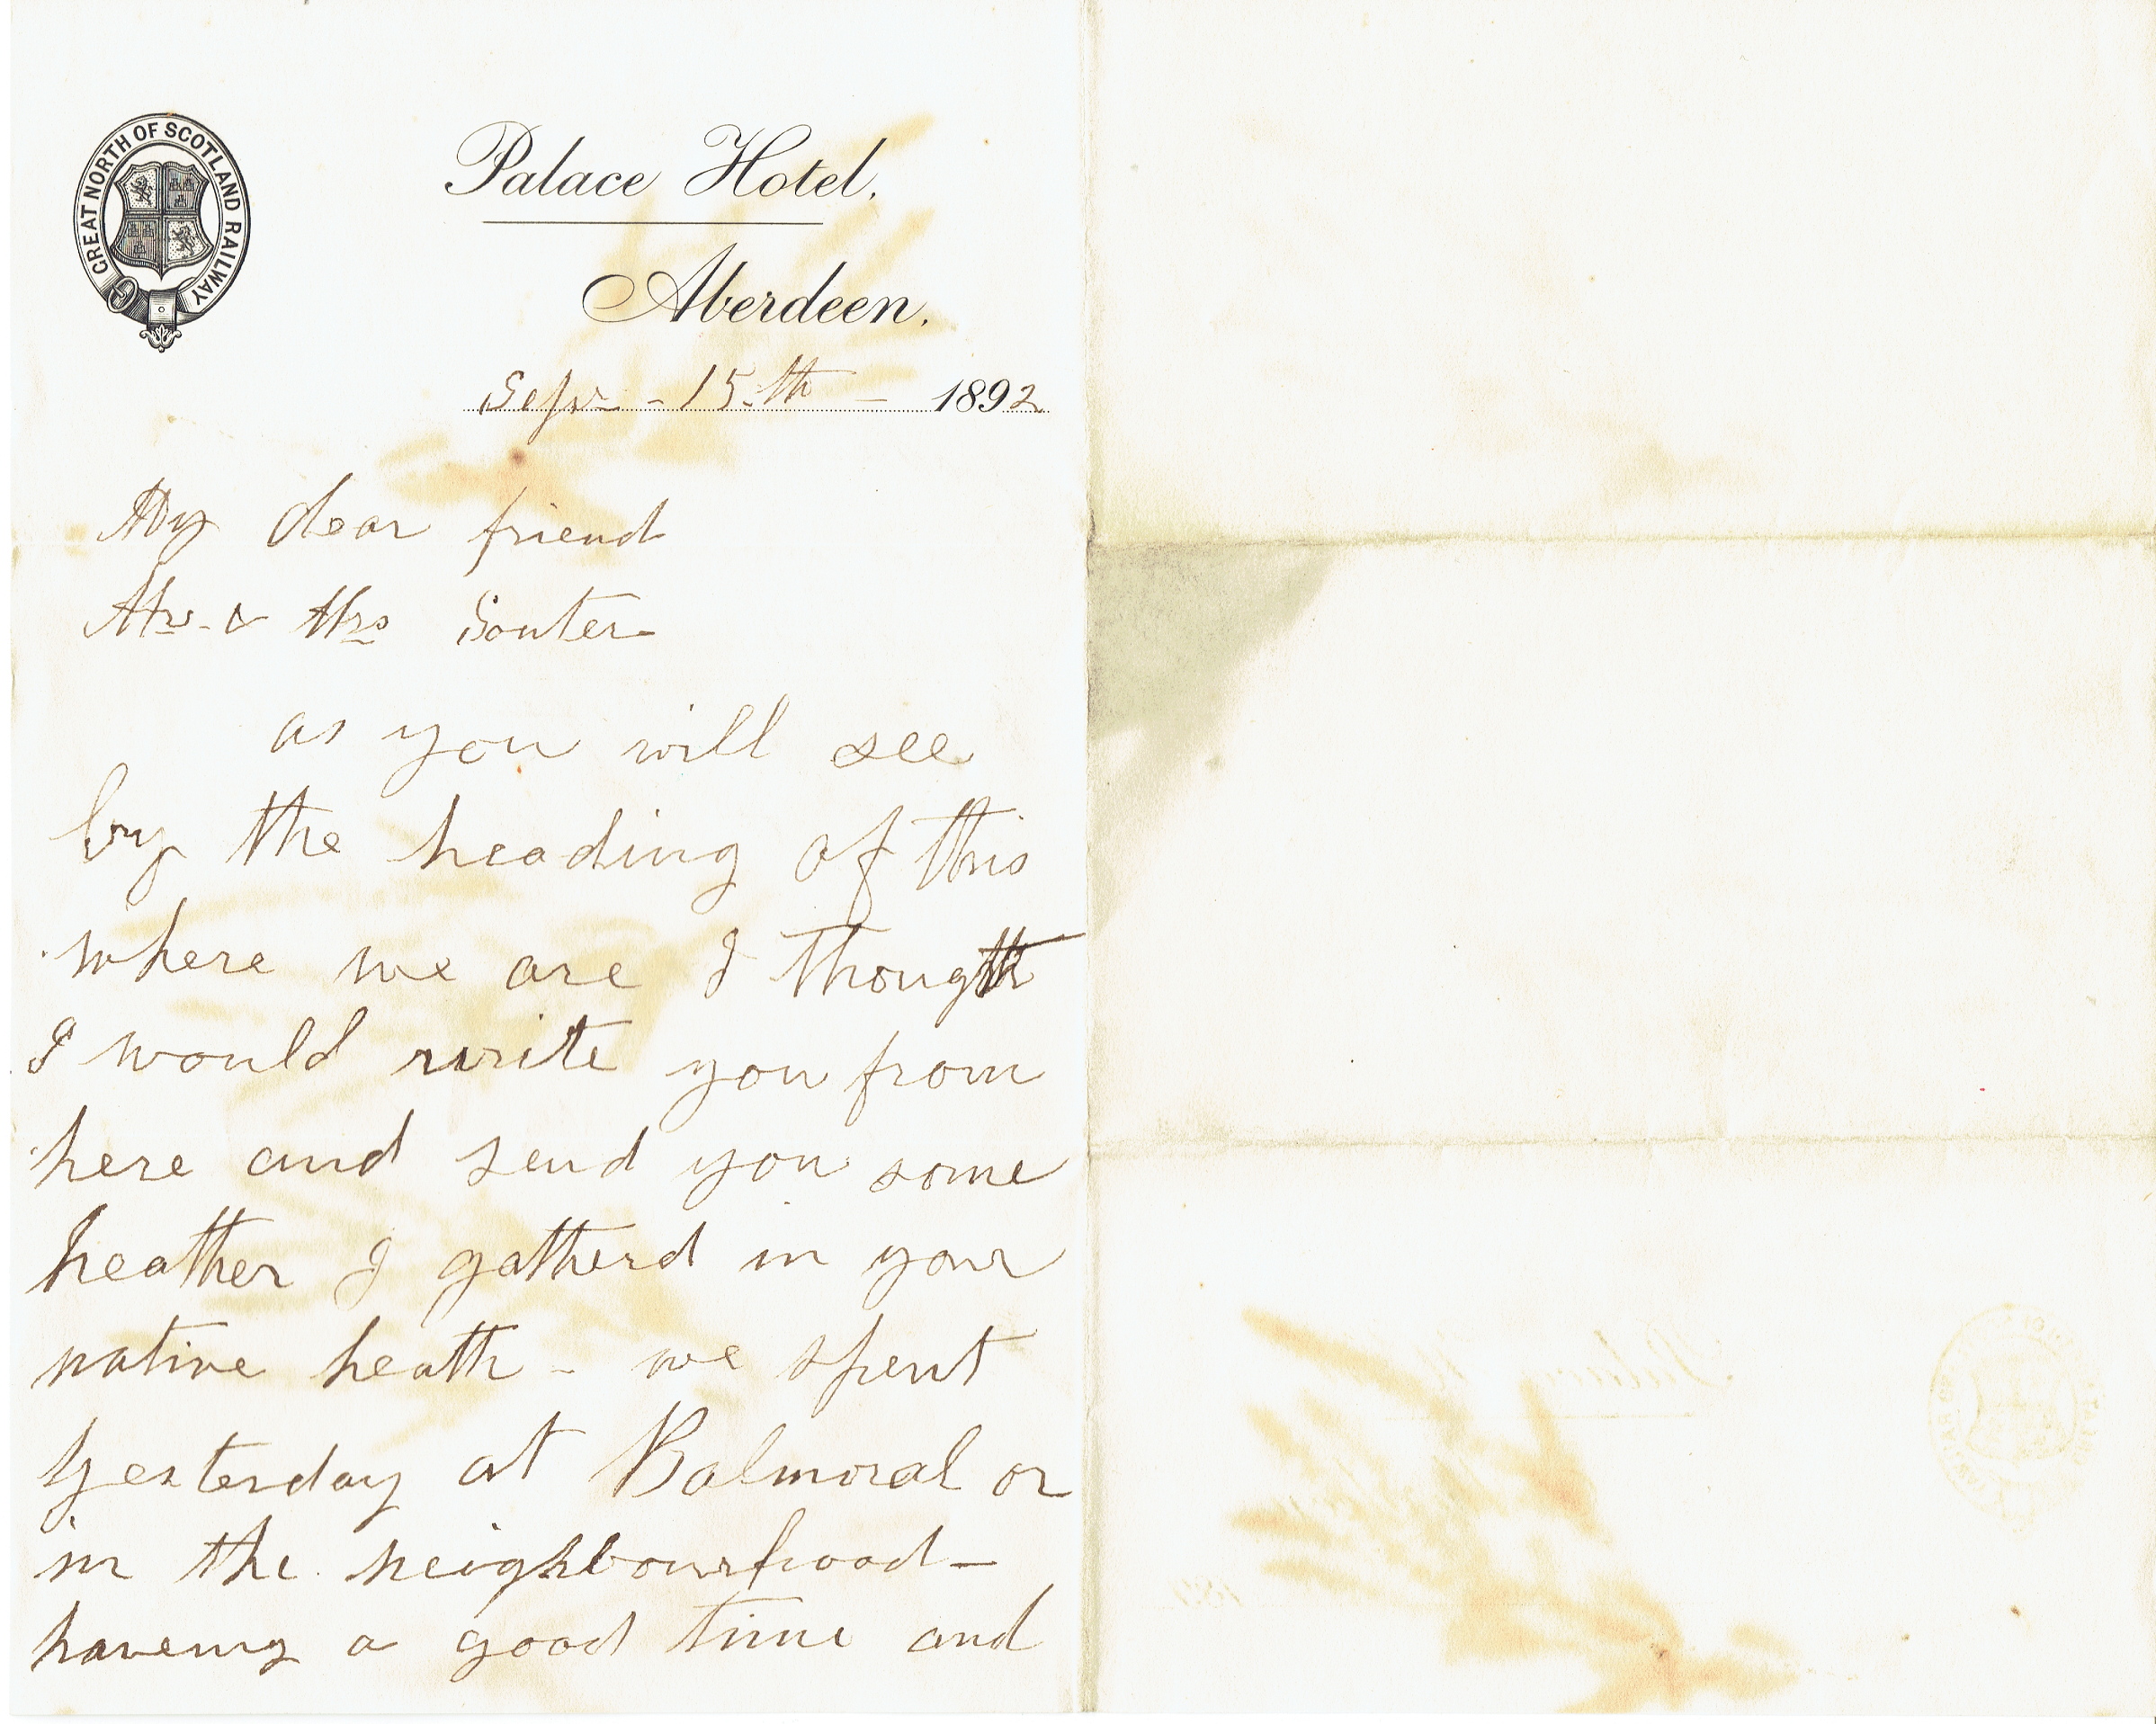 GREAT NORTH OF SCOTLAND RAILWAY
Palace Hotel,
Aberdeen,
Sepr - 15th - 1892
My dear friend
Mr & Mrs Souter
as you will see
by the heading of this
where we are I thought
I would write you from
here and send you some
heather I gatherd in your
native heath - we spent
yesterday at Balmoral or
in the neighbourhood -
haveing a good time and